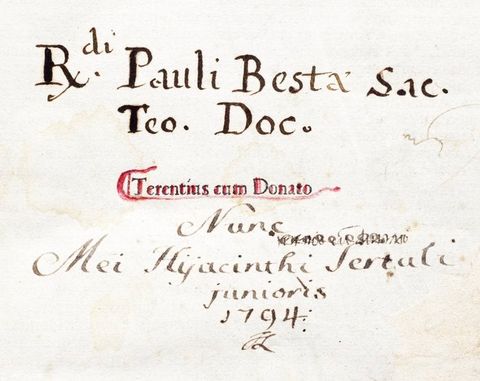 R.di Pauli Bestæ Sac.
Teo. Doc.
Terentius cum Donato
Nunc
Mei Hijacinthi Sertuli
junioris
1794.